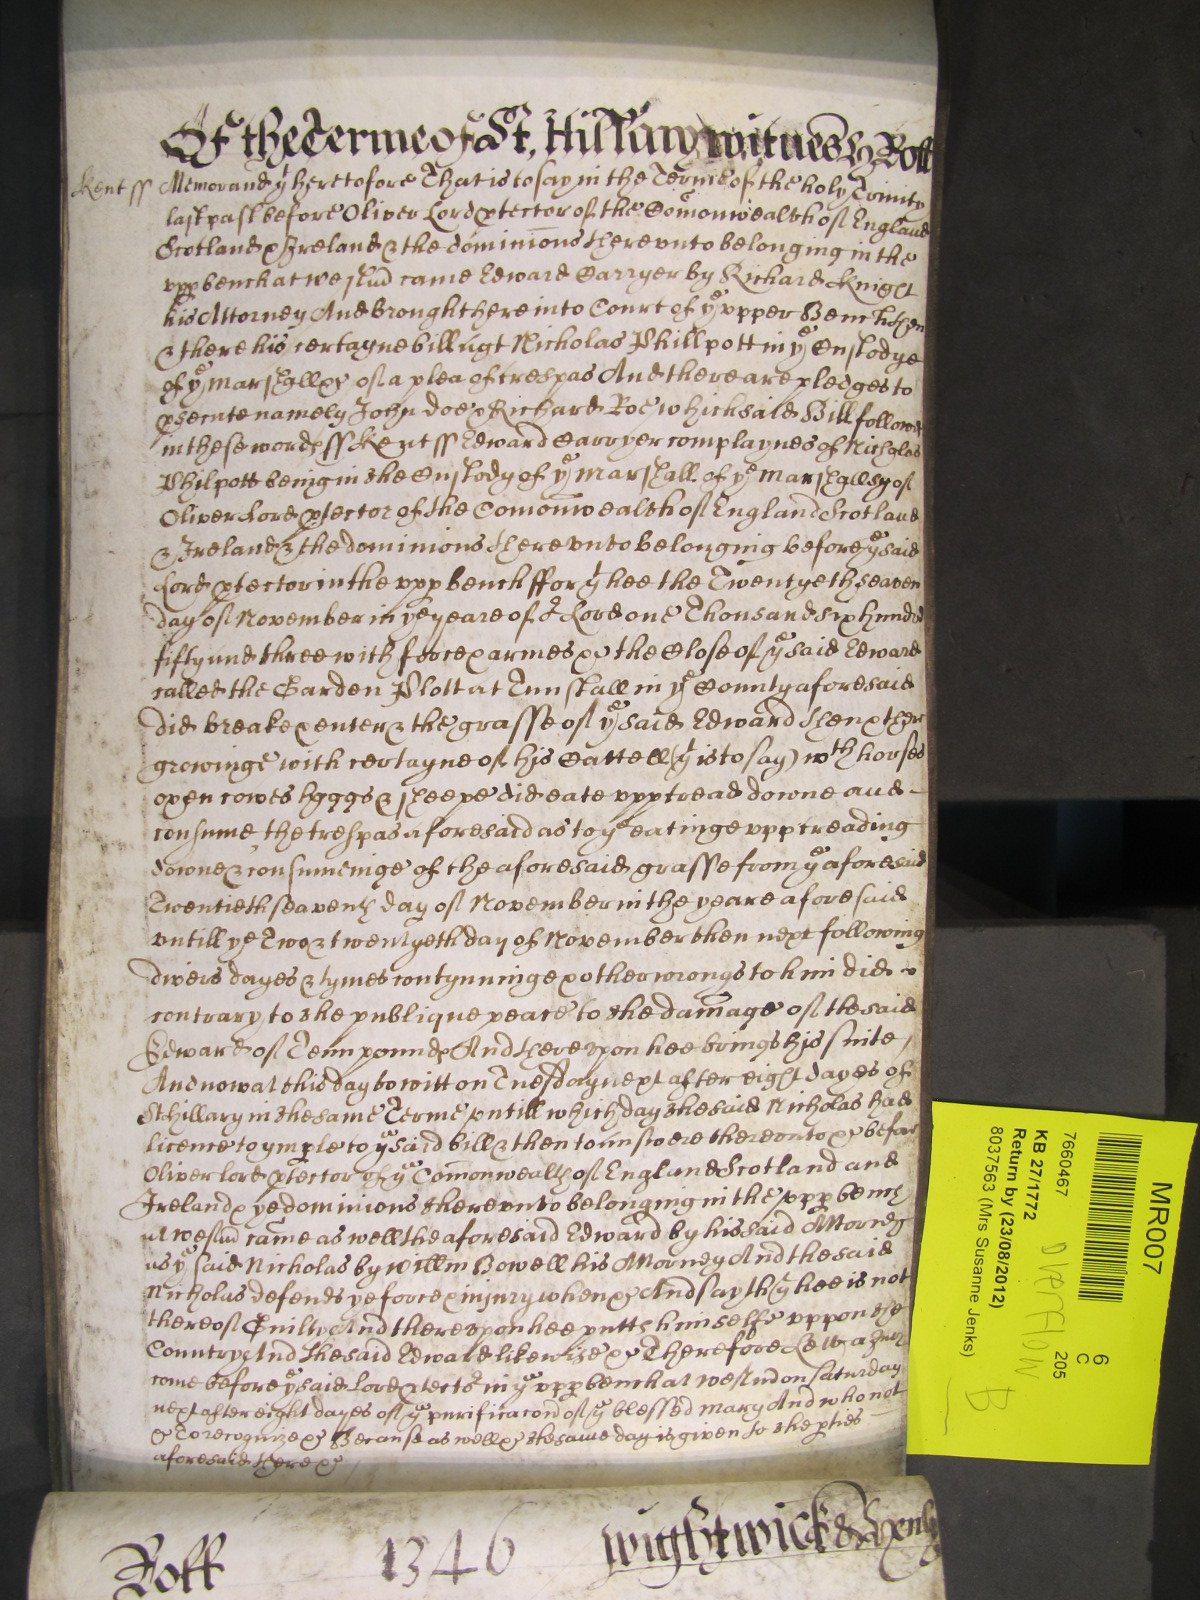 Of the Terme of St. Hillary witnes H Roll
Kent ss Memorand yt heretofore That is to say in the Terme of the holy Trinity
last past before Oliver Lord ptector of the Comonwealth of England
Scotland & Ireland & the dominions thereunto belonging in the
upp bench at westm came Edward Carryer by Richard Knight
his Attorney And brought here into Court of ye upper Bench then
& there his certayne bill agt Nicholas Phillpott in ye Custodye
of ye marshall &c of a plea of trespas And there are pledges to
psecute namely John doe & Richard Roe which said Bill followes
in these words ss Kent ss Edward Carryer complaynes of Nicholas
Philpott being in the Custody of ye marshall of ye marshallsy of
Oliver Lord ptector of the Comonwealth of England Scotland
& Ireland & the dominions thereunto belonging before ye said
Lord ptector in the upp bench ffor yt hee the Twentyeth seaven
day of November in ye yeare of or Lord one Thousand six hundred
fifty and three with force & armes &c the Close of ye said Edward
called the Garden Plott at Tunstall in ye County aforesaid
did breake & enter & the grasse of ye said Edward then & there
growinge with certayne of his Cattell (yt is to say) wth horses
oxen cowes hoggs & sheepe did eate upp tread downe and
consume the trespas aforesaid as to ye eatinge upp treading
downe & consumeinge of the aforesaid grasse from ye aforesaid
Twentieth seaventh day of November in the yeare aforesaid
untill ye Two & twentyeth day of November then next following
divers dayes & tymes contynuinge & other wrongs to him did
contrary to the publique peace to the damage of the said
Edward of Tenn pounds And thereupon hee brings his suite
And now at this day to witt on Tuesday next after eight dayes of
St hillary in the same Terme untill which day the said Nicholas had
licence to imple to ye said bill & then to answere thereunto &c before
Oliver lord ptector of ye Comonwealth of England Scotland and
Ireland & ye dominions thereunto belonging in the upp bench
at westm came as well the aforesaid Edward by his said Attorney
as ye said Nicholas by willm Bowell his Attorney And the said
Nicholas defends ye force & injury when &c And sayth yt hee is not
thereof Guilty And thereupon hee putts himselfe uppon the
Country And the said Edward likewize &c Therefore Lett a Jury
come before ye said Lord ptector in ye upp bench at westm on Saturday
next after eight dayes of ye purificacon of ye blessed mary And who not
&c To recognize &c Because as well &c the same day is given to the pties
aforesaid there &c
Roll 1346 wightwick &
MR007
6
C
205
7660467
KB 27/1772
Return by (23/08/2012)
8037563 (Mrs Susanne Jenks)
OVERFLOW
B